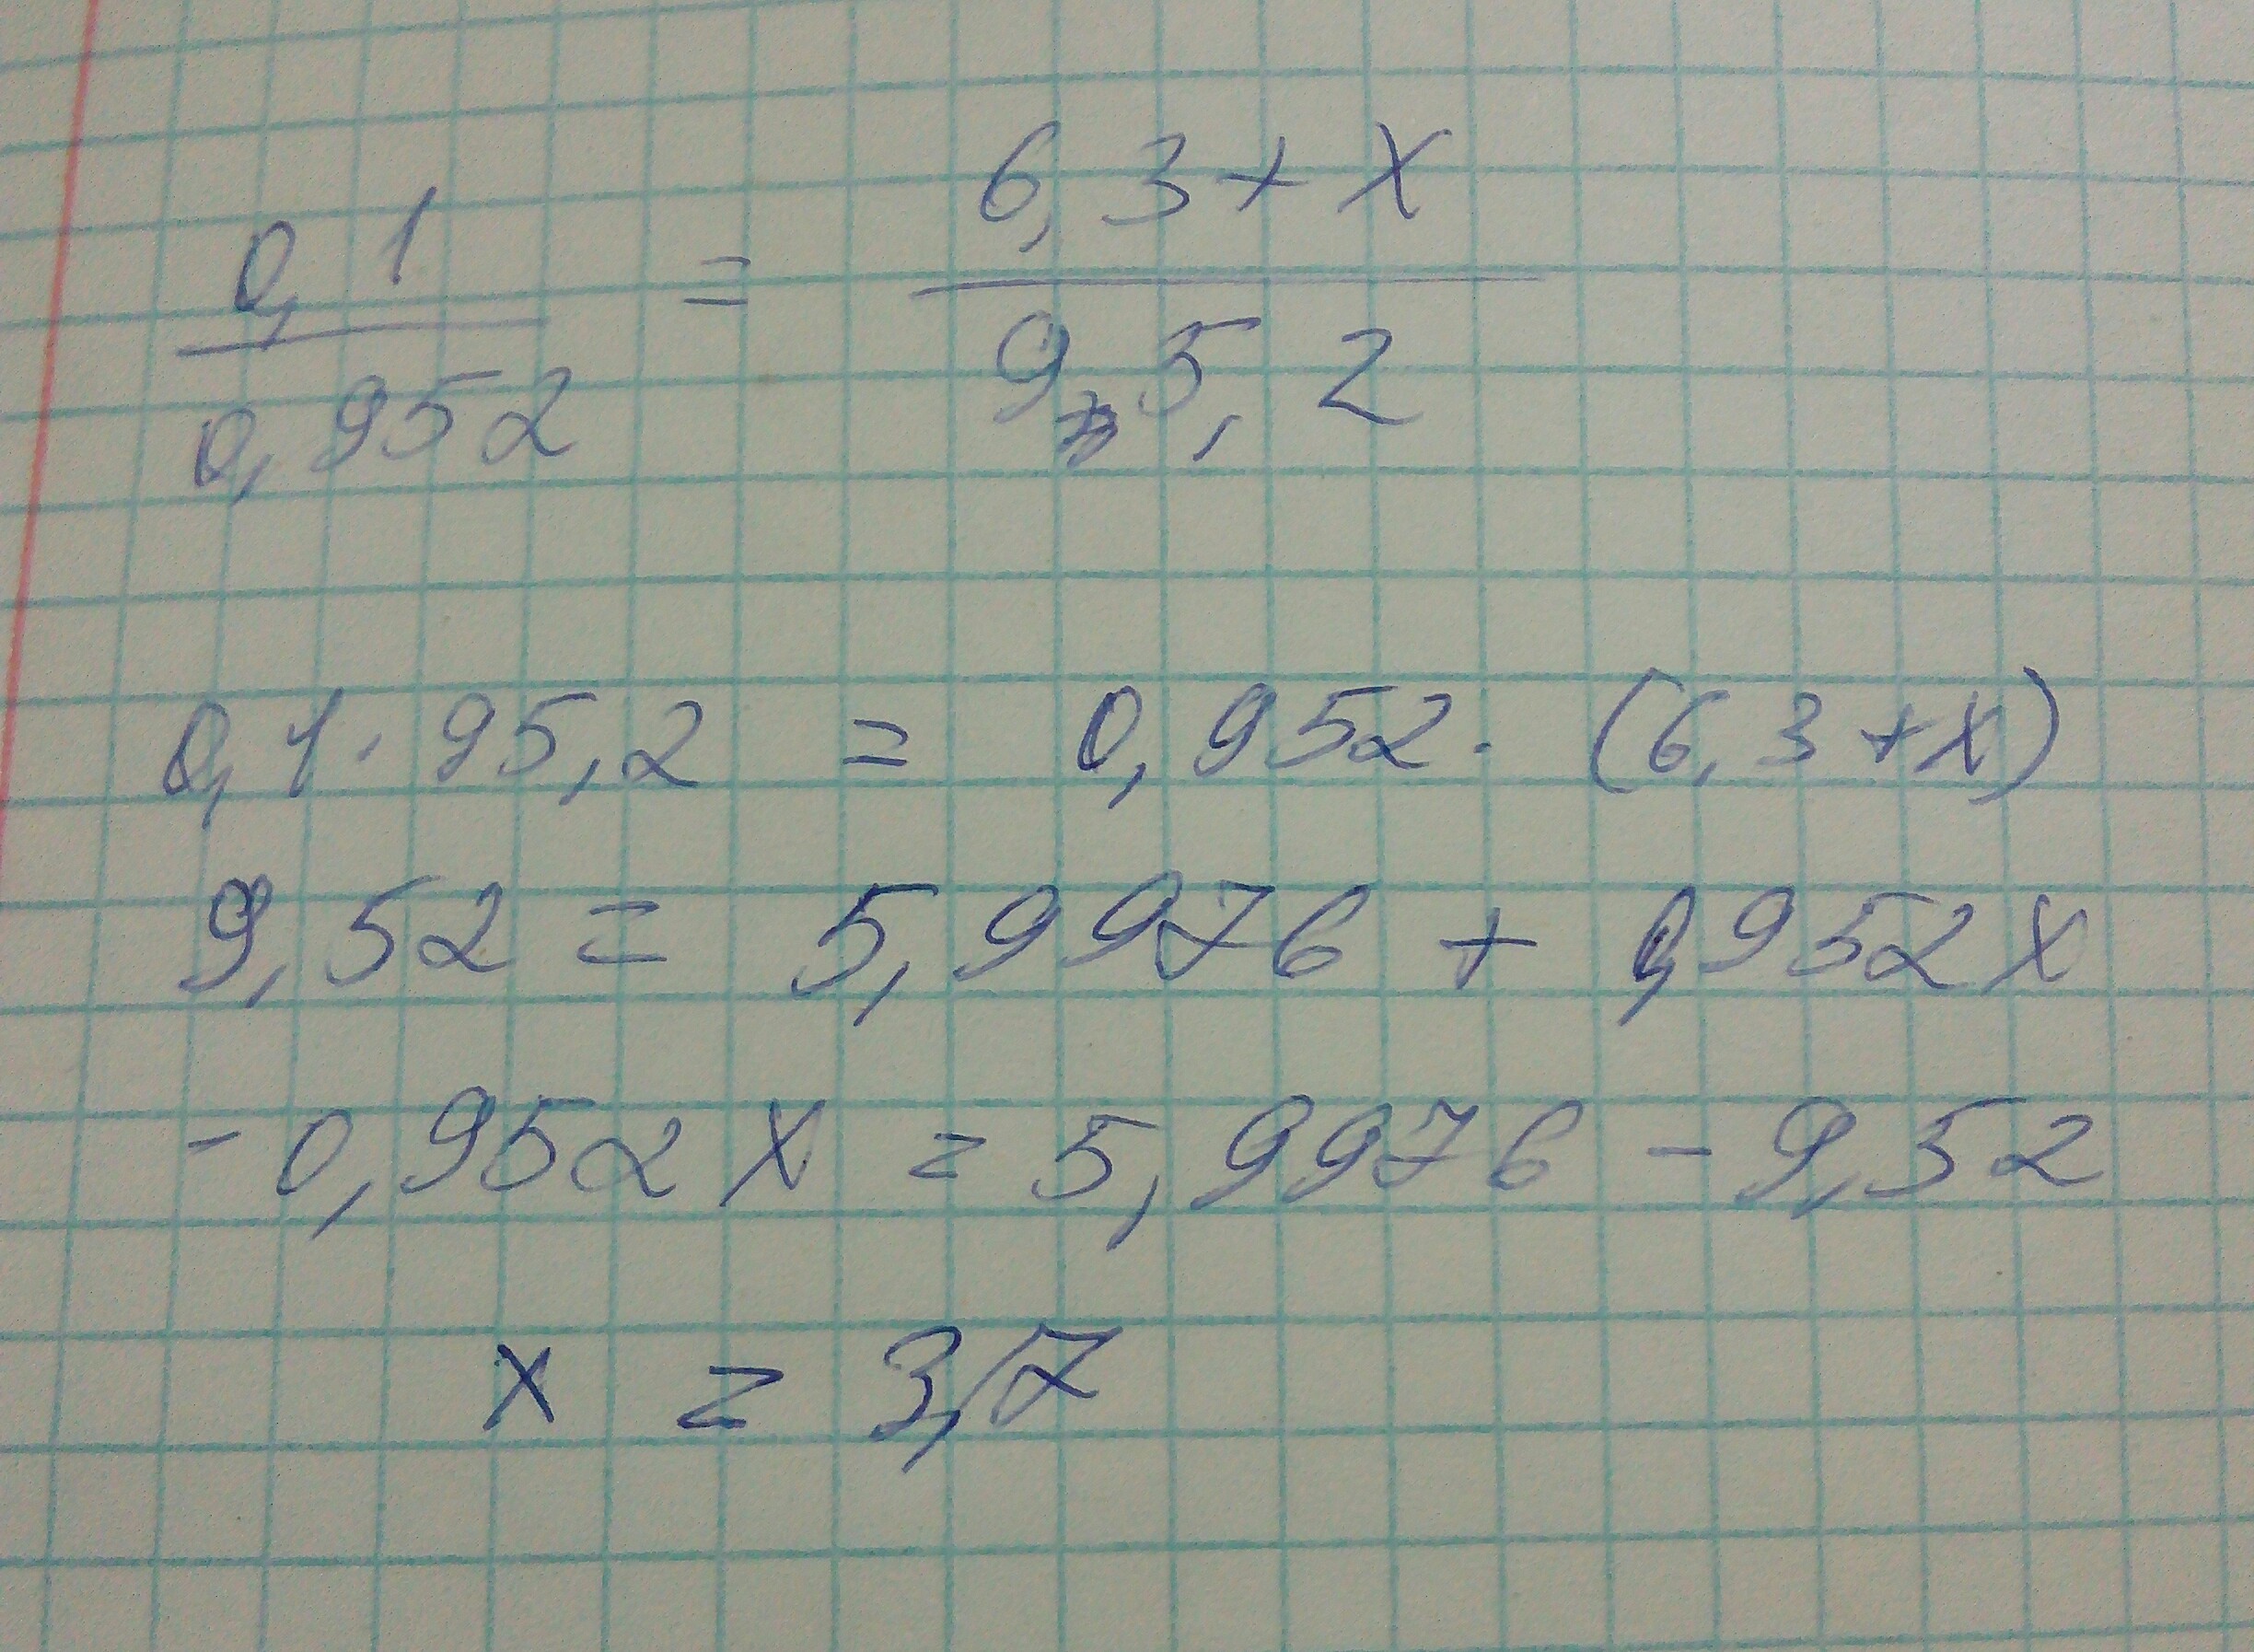 0,1 = 6,3 + x
0,952 95,2
0,1 · 95,2 = 0,952 · (6,3 + x)
9,52 = 5,9976 + 0,952 x
- 0,952 x = 5,9976 - 9,52
x = 3,7